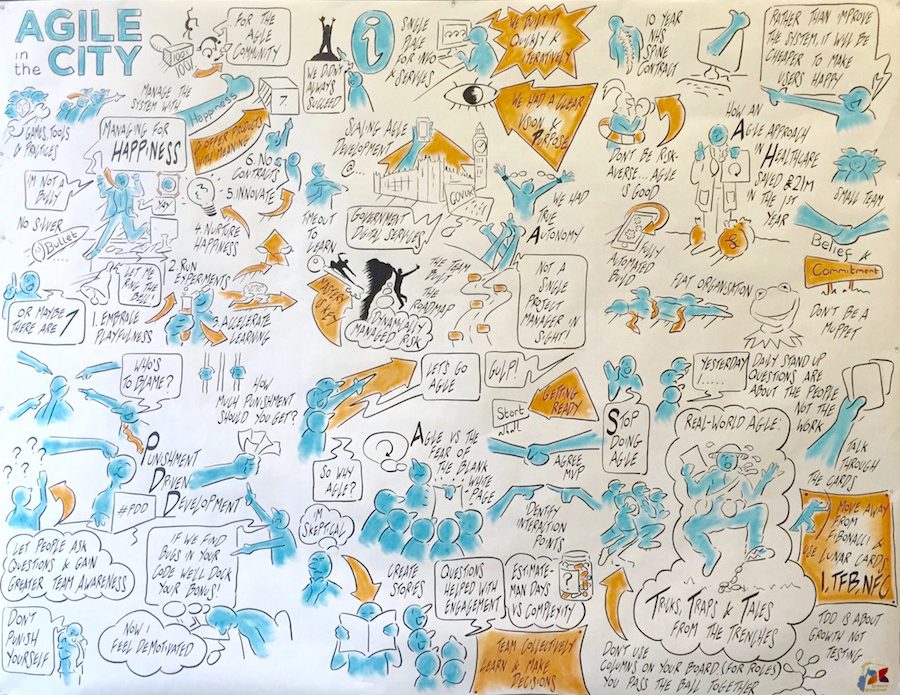 AGILE
in
the CITY
FOR THE
AGILE
COMMUNITY
WE DON'T
ALWAYS
SUCCEED
i
SINGLE
PLACE
FOR INFO
SERVICES
WE BUILT IT
QUICKLY &
ITERATIVELY
10 YEAR
NHS
SPINE
CONTRACT
RATHER THAN IMPROVE
THE SYSTEM, IT WILL BE
CHEAPER TO MAKE
USERS HAPPY
GAMES, TOOLS
& PRACTICES
MANAGE THE
SYSTEM WITH
Happiness
7.
MANAGING FOR
HAPPINESS
& OFFER PRODUCTS
WITH MEANING
6. NO
CONTRACTS
5. INNOVATE
4. NURTURE
HAPPINESS
2. RUN
EXPERIMENTS
1. EMBRACE
PLAYFULNESS
3. ACCELERATE
LEARNING
I'M NOT A
BULLY
NO SILVER
Bullet
YAY
LET ME
RING THE
BELL!
OR MAYBE
THERE ARE 7
SCALING AGILE
DEVELOPMENT
@...
GOV.UK
GOVERNMENT
DIGITAL SERVICES
TIME OUT
TO
LEARN
MASTERY
IS KEY
DYNAMICALLY
MANAGED RISK
THE TEAM
BUILT
THE
ROADMAP
WE HAD A CLEAR
VISION &
PURPOSE
WE HAD
TRUE
AUTONOMY
NOT A
SINGLE
PROJECT
MANAGER IN
SIGHT!
DON'T BE RISK-
AVERSE... AGILE
IS GOOD
FULLY
AUTOMATED
BUILD
HOW AN
AGILE APPROACH
IN HEALTHCARE
SAVED £21M
IN THE 1ST
YEAR
SMALL TEAM
Belief &
Commitment
FLAT ORGANISATION
DON'T BE A
MUPPET
WHO'S
TO BLAME?
HOW
MUCH PUNISHMENT
SHOULD YOU GET?
PUNISHMENT
DRIVEN
DEVELOPMENT
#PDD
LET PEOPLE ASK
QUESTIONS & GAIN
GREATER TEAM AWARENESS
IF WE FIND
BUGS IN YOUR
CODE WE'LL DOCK
YOUR BONUS!
DON'T
PUNISH
YOURSELF
NOW I
FEEL DEMOTIVATED
LET'S GO
AGILE
GULP!
GETTING
READY
Start
SO WHY
AGILE?
AGILE VS THE
FEAR OF
THE BLANK
WHITE
PAGE
AGREE
MVP
I'M
SKEPTICAL
IDENTIFY
INTERACTION
POINTS
CREATE
STORIES
QUESTIONS
HELPED WITH
ENGAGEMENT
ESTIMATE-
MAN DAYS
VS COMPLEXITY
TEAM COLLECTIVELY
LEARN & MAKE
DECISIONS
STOP
DOING
AGILE
YESTERDAY
.....
DAILY STAND UP
QUESTIONS ARE
ABOUT THE PEOPLE
NOT THE
WORK
TALK
THROUGH
THE CARDS
REAL-WORLD AGILE:
TRICKS, TRAPS & TALES
FROM THE TRENCHES
MOVE AWAY
FROM
FIBONACCI &
USE LUNAR CARDS
1, TFB, NFC
DON'T USE
COLUMNS ON YOUR BOARD (FOR ROLES)
YOU PASS THE BALL TOGETHER
TDD IS ABOUT
GROWTH NOT
TESTING